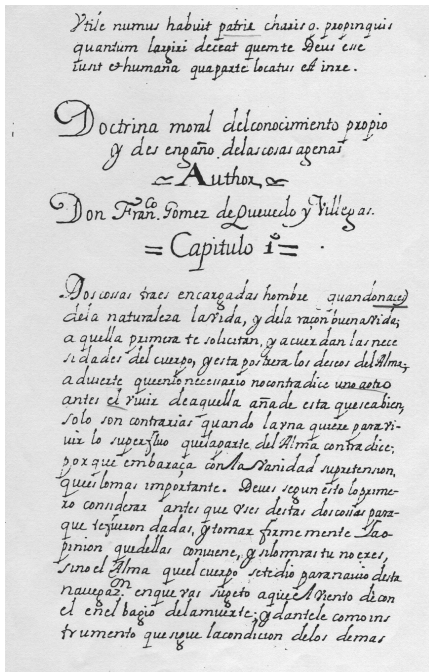 Vtile numus habuit patriæ charisq. propinquis
quantum largiri deceat quem te Deus esse
iusit et humana qua parte locatus est in re.
Doctrina moral del conocimiento propio
y desengaño de las cosas agenas
Author,
Don Fran.co Gomez de Queuedo y Villegas.
= Capitulo i.º =
Dos cossas traes encargadas hombre quando naces,
de la naturaleza la vida, y de la raçon buena vida;
aquella primera te solicitan, y acuerdan las nece
sidades del cuerpo, y esta postrera los deseos del Alma;
aduierte que en lo necessario no contradice uno a otro
antes el viuir de aquella añade esta que sea bien,
solo son contrarias quando la vna quiere para vi-
uir lo superfluo que la parte del Alma contradice;
porque embaraça con la vanidad su pretension,
que es lo mas importante. Deues segun esto lo prime-
ro considerar antes que vses destas dos cosas para-
que te fueron dadas, y tomar firmemente la o
pinion que dellas conuiene, y si lo miras tu no eres,
sino el Alma que el cuerpo se te dio para nauio desta
nauegaz.on en que vas sugeto a que el viento de con
el en el bagio de la muerte; y dantele como ins
trumento que sigue la condicion de los demas